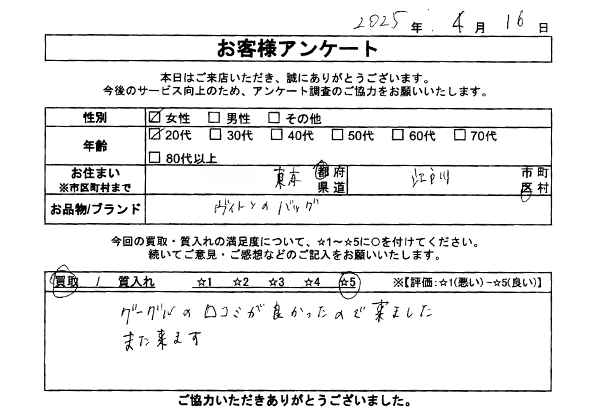 2025 年 4 月 16 日
お客様アンケート
本日はご来店いただき、誠にありがとうございます。
今後のサービス向上のため、アンケート調査のご協力をお願いいたします。
性別 ☑ 女性 □ 男性 □ その他
年齢 ☑ 20代 □ 30代 □ 40代 □ 50代 □ 60代 □ 70代
□ 80代以上
お住まい
※市区町村まで
東京 都 府 県 道 江戸川 市 町 区 村
お品物/ブランド ヴィトンのバッグ
今回の買取・質入れの満足度について、☆1～☆5に○を付けてください。
続いてご意見・ご感想などのご記入をお願いいたします。
買取 / 質入れ ☆1 ☆2 ☆3 ☆4 ☆5 ※【評価:☆1(悪い)-☆5(良い)】
グーグルの口コミが良かったので来ました
また来ます
ご協力いただきありがとうございました。